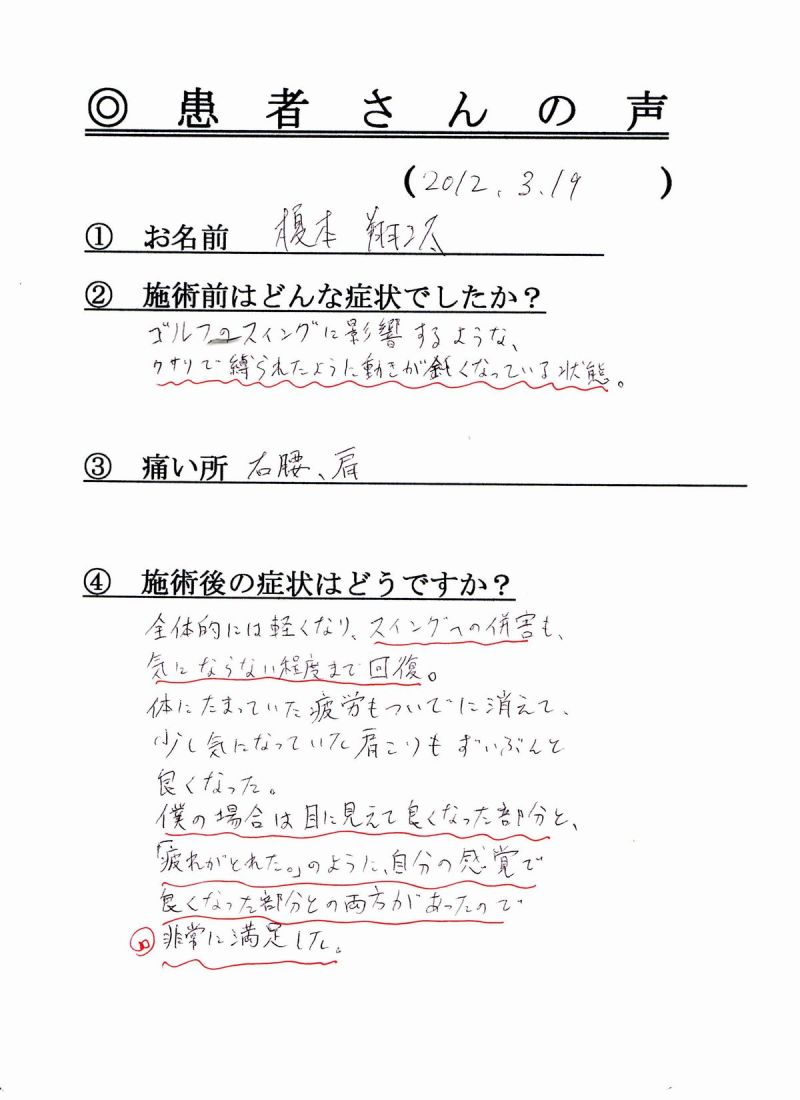 ◎患者さんの声
(2012.3.19)
① お名前 榎本 翔太
② 施術前はどんな症状でしたか?
ゴルフのスイングに影響するような、
クサリで縛られたように動きが鈍くなっている状態。
③ 痛い所 右腰、肩
④ 施術後の症状はどうですか?
全体的には軽くなり、スイングへの併害も、
気にならない程度まで回復。
体にたまっていた疲労もついでに消えて、
少し気になっていた肩こりもずいぶんと
良くなった。
僕の場合は目に見えて良くなった部分と、
「疲れがとれた。」のように、自分の感覚で
良くなった部分との両方があったので
非常に満足した。